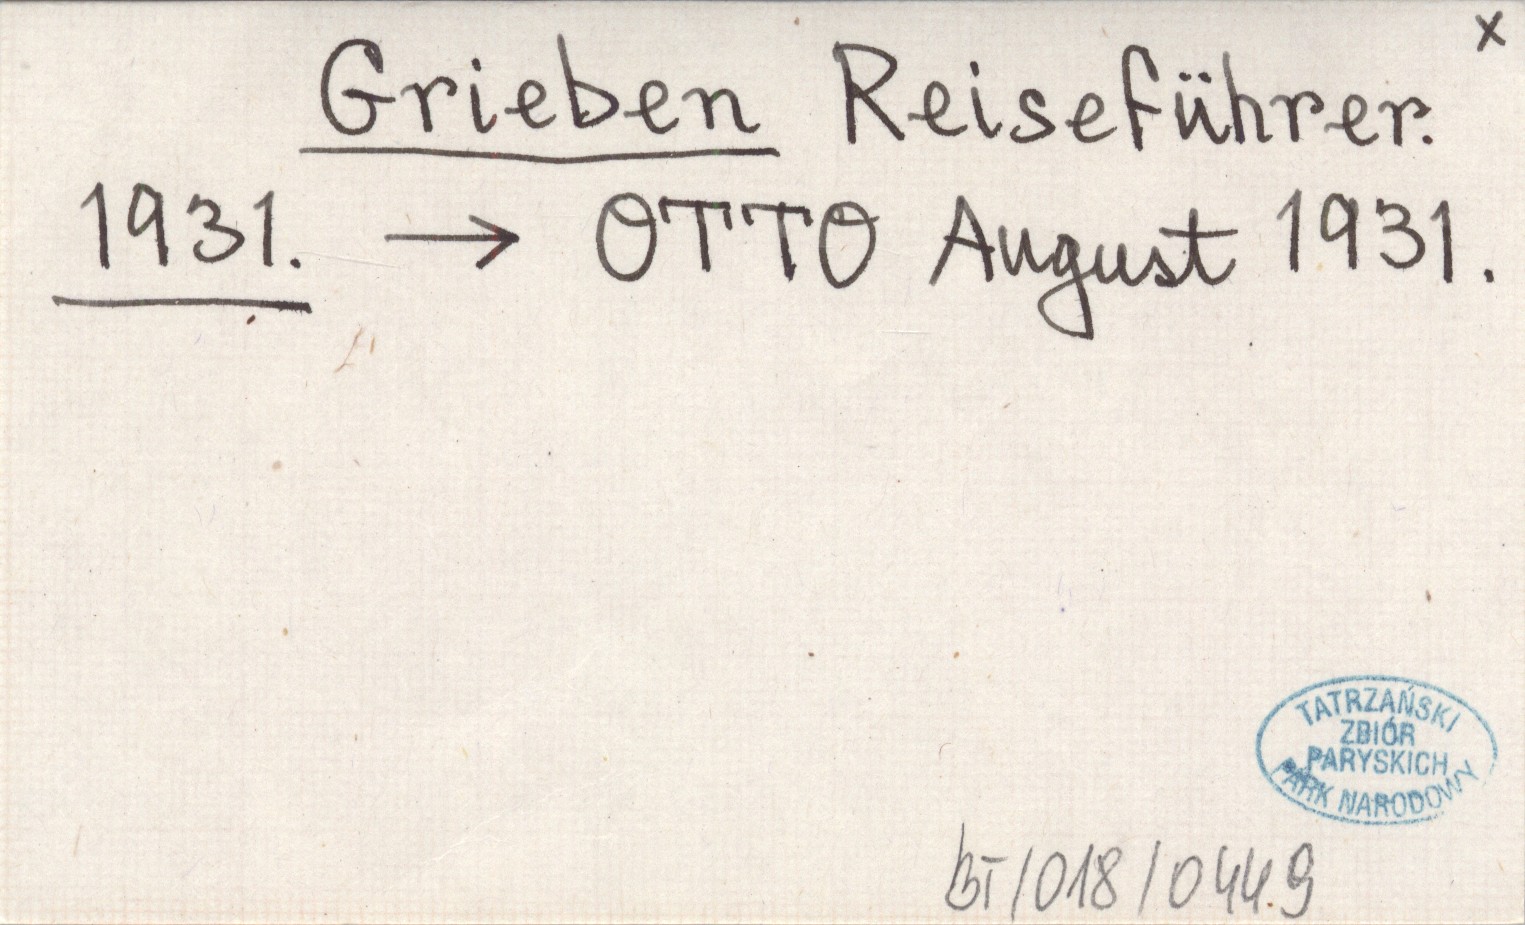 x
Grieben Reiseführer.
1931. → OTTO August 1931.
TATRZAŃSKI
ZBIÓR
PARYSKICH
PARK NARODOWY
BT/018/0449